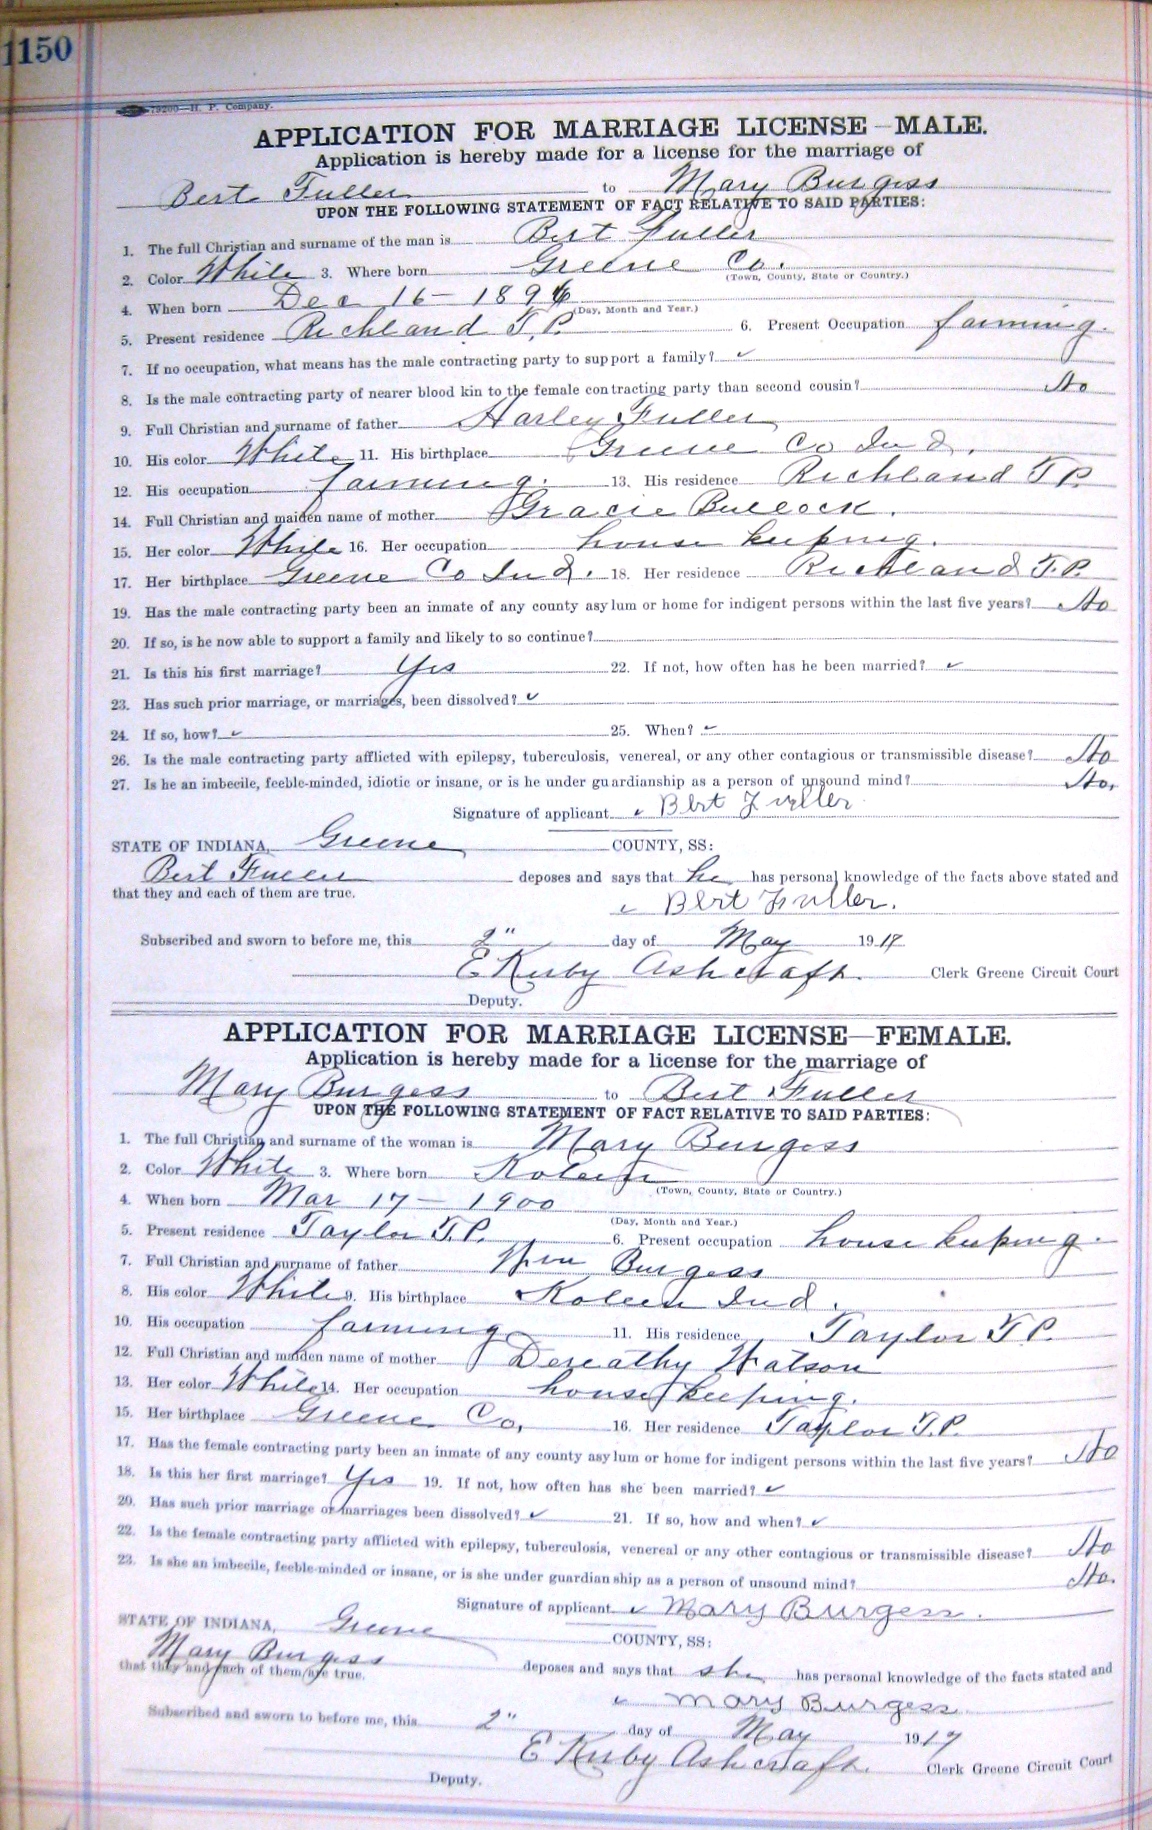 1150
79200—H. P. Company.
APPLICATION FOR MARRIAGE LICENSE—MALE.
Application is hereby made for a license for the marriage of
Bert Fuller to Mary Burgess
UPON THE FOLLOWING STATEMENT OF FACT RELATIVE TO SAID PARTIES:
1. The full Christian and surname of the man is Bert Fuller
2. Color White 3. Where born Greene Co.
(Town, County, State or Country.)
4. When born Dec 16 - 1896
(Day, Month and Year.)
5. Present residence Richland T.P. 6. Present Occupation farming.
7. If no occupation, what means has the male contracting party to support a family? ✓
8. Is the male contracting party of nearer blood kin to the female contracting party than second cousin? No
9. Full Christian and surname of father Harley Fuller
10. His color White 11. His birthplace Greene Co Ind.
12. His occupation farming. 13. His residence Richland T P.
14. Full Christian and maiden name of mother Gracie Bullock.
15. Her color White 16. Her occupation house keeping.
17. Her birthplace Greene Co Ind. 18. Her residence Richland T.P.
19. Has the male contracting party been an inmate of any county asylum or home for indigent persons within the last five years? No
20. If so, is he now able to support a family and likely to so continue?
21. Is this his first marriage? Yes 22. If not, how often has he been married? ✓
23. Has such prior marriage, or marriages, been dissolved? ✓
24. If so, how? ✓ 25. When? ✓
26. Is the male contracting party afflicted with epilepsy, tuberculosis, venereal, or any other contagious or transmissible disease? No
27. Is he an imbecile, feeble-minded, idiotic or insane, or is he under guardianship as a person of unsound mind? No.
Signature of applicant ✓ Bert Fuller
STATE OF INDIANA, Greene COUNTY, SS:
Bert Fuller deposes and says that he has personal knowledge of the facts above stated and
that they and each of them are true.
✓ Bert Fuller.
Subscribed and sworn to before me, this 2" day of May 1917
E Kirby Ashcraft. Clerk Greene Circuit Court
Deputy.
APPLICATION FOR MARRIAGE LICENSE—FEMALE.
Application is hereby made for a license for the marriage of
Mary Burgess to Bert Fuller
UPON THE FOLLOWING STATEMENT OF FACT RELATIVE TO SAID PARTIES:
1. The full Christian and surname of the woman is Mary Burgess
2. Color White 3. Where born Koleen
(Town, County, State or Country.)
4. When born Mar 17 - 1900
(Day, Month and Year.)
5. Present residence Taylor T.P. 6. Present occupation house keeping.
7. Full Christian and surname of father Wm Burgess
8. His color White 9. His birthplace Koleen Ind.
10. His occupation farming 11. His residence Taylor T P.
12. Full Christian and maiden name of mother Doreathy Watson
13. Her color White 14. Her occupation house keeping.
15. Her birthplace Greene Co, 16. Her residence Taylor T.P.
17. Has the female contracting party been an inmate of any county asylum or home for indigent persons within the last five years? No
18. Is this her first marriage? Yes 19. If not, how often has she been married? ✓
20. Has such prior marriage or marriages been dissolved? ✓ 21. If so, how and when? ✓
22. Is the female contracting party afflicted with epilepsy, tuberculosis, venereal or any other contagious or transmissible disease? No
23. Is she an imbecile, feeble-minded or insane, or is she under guardianship as a person of unsound mind? No.
Signature of applicant ✓ Mary Burgess.
STATE OF INDIANA, Greene COUNTY, SS:
Mary Burgess deposes and says that she has personal knowledge of the facts stated and
that they and each of them are true.
✓ Mary Burgess.
Subscribed and sworn to before me, this 2" day of May 1917
E Kirby Ashcraft. Clerk Greene Circuit Court
Deputy.